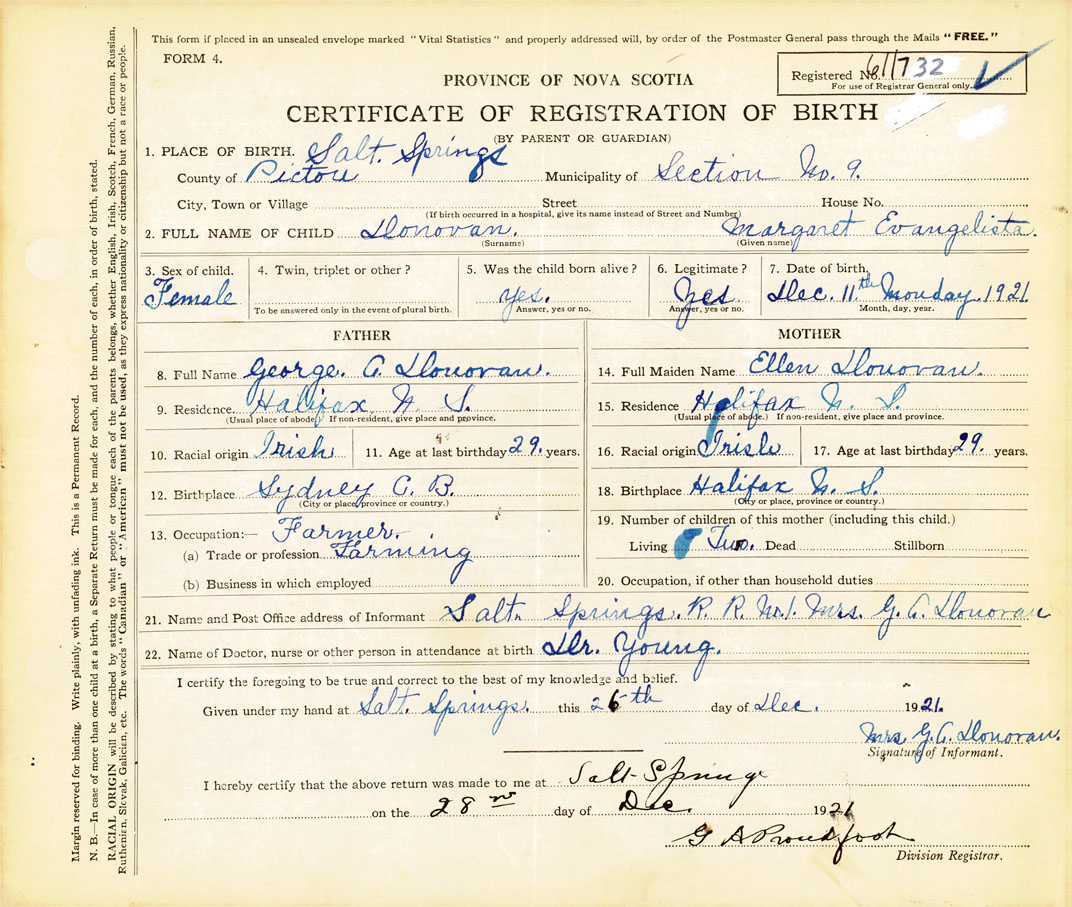 This form if placed in an unsealed envelope marked "Vital Statistics" and properly addressed will, by order of the Postmaster General pass through the Mails "FREE."
FORM 4.
Registered No. 61732
For use of Registrar General only.
PROVINCE OF NOVA SCOTIA
CERTIFICATE OF REGISTRATION OF BIRTH
(BY PARENT OR GUARDIAN)
1. PLACE OF BIRTH. Salt. Springs
County of Pictou Municipality of Section No. 9.
City, Town or Village Street House No.
(If birth occurred in a hospital, give its name instead of Street and Number)
2. FULL NAME OF CHILD Donovan. Margaret Evangelista.
(Surname) (Given name)
3. Sex of child. 4. Twin, triplet or other? 5. Was the child born alive? 6. Legitimate? 7. Date of birth,
Female yes. Yes Dec. 11th Monday. 1921
To be answered only in the event of plural birth. Answer, yes or no. Answer, yes or no. Month, day, year.
FATHER
8. Full Name George. A. Donovan.
9. Residence. Halifax N. S.
(Usual place of abode.) If non-resident, give place and province.
10. Racial origin Irish 11. Age at last birthday 29. years.
12. Birthplace Sydney C. B.
(City or place, province or country.)
13. Occupation:— Farmer.
(a) Trade or profession Farming
(b) Business in which employed
MOTHER
14. Full Maiden Name Ellen Donovan.
15. Residence Halifax N. S.
(Usual place of abode.) If non-resident, give place and province.
16. Racial origin Irish 17. Age at last birthday 29. years.
18. Birthplace Halifax N. S.
(City or place, province or country.)
19. Number of children of this mother (including this child.)
Living Two. Dead Stillborn
20. Occupation, if other than household duties
21. Name and Post Office address of Informant Salt. Springs. R. R. No 1. Mrs. G. A. Donovan
22. Name of Doctor, nurse or other person in attendance at birth Dr. Young.
I certify the foregoing to be true and correct to the best of my knowledge and belief.
Given under my hand at Salt. Springs. this 26th day of Dec. 1921.
Mrs G. A. Donovan.
Signature of Informant.
I hereby certify that the above return was made to me at Salt Springs
on the 28 day of Dec. 1921
G A Proudfoot
Division Registrar.
Margin reserved for binding. Write plainly, with unfading ink. This is a Permanent Record.
N. B.—In case of more than one child at a birth, a Separate Return must be made for each, and the number of each, in order of birth, stated.
RACIAL ORIGIN will be described by stating to what people or tongue each of the parents belongs, whether English, Irish, Scotch, French, German, Russian,
Ruthenian, Slovak, Galician, etc. The words "Canadian" or "American" must not be used, as they express nationality or citizenship but not a race or people.